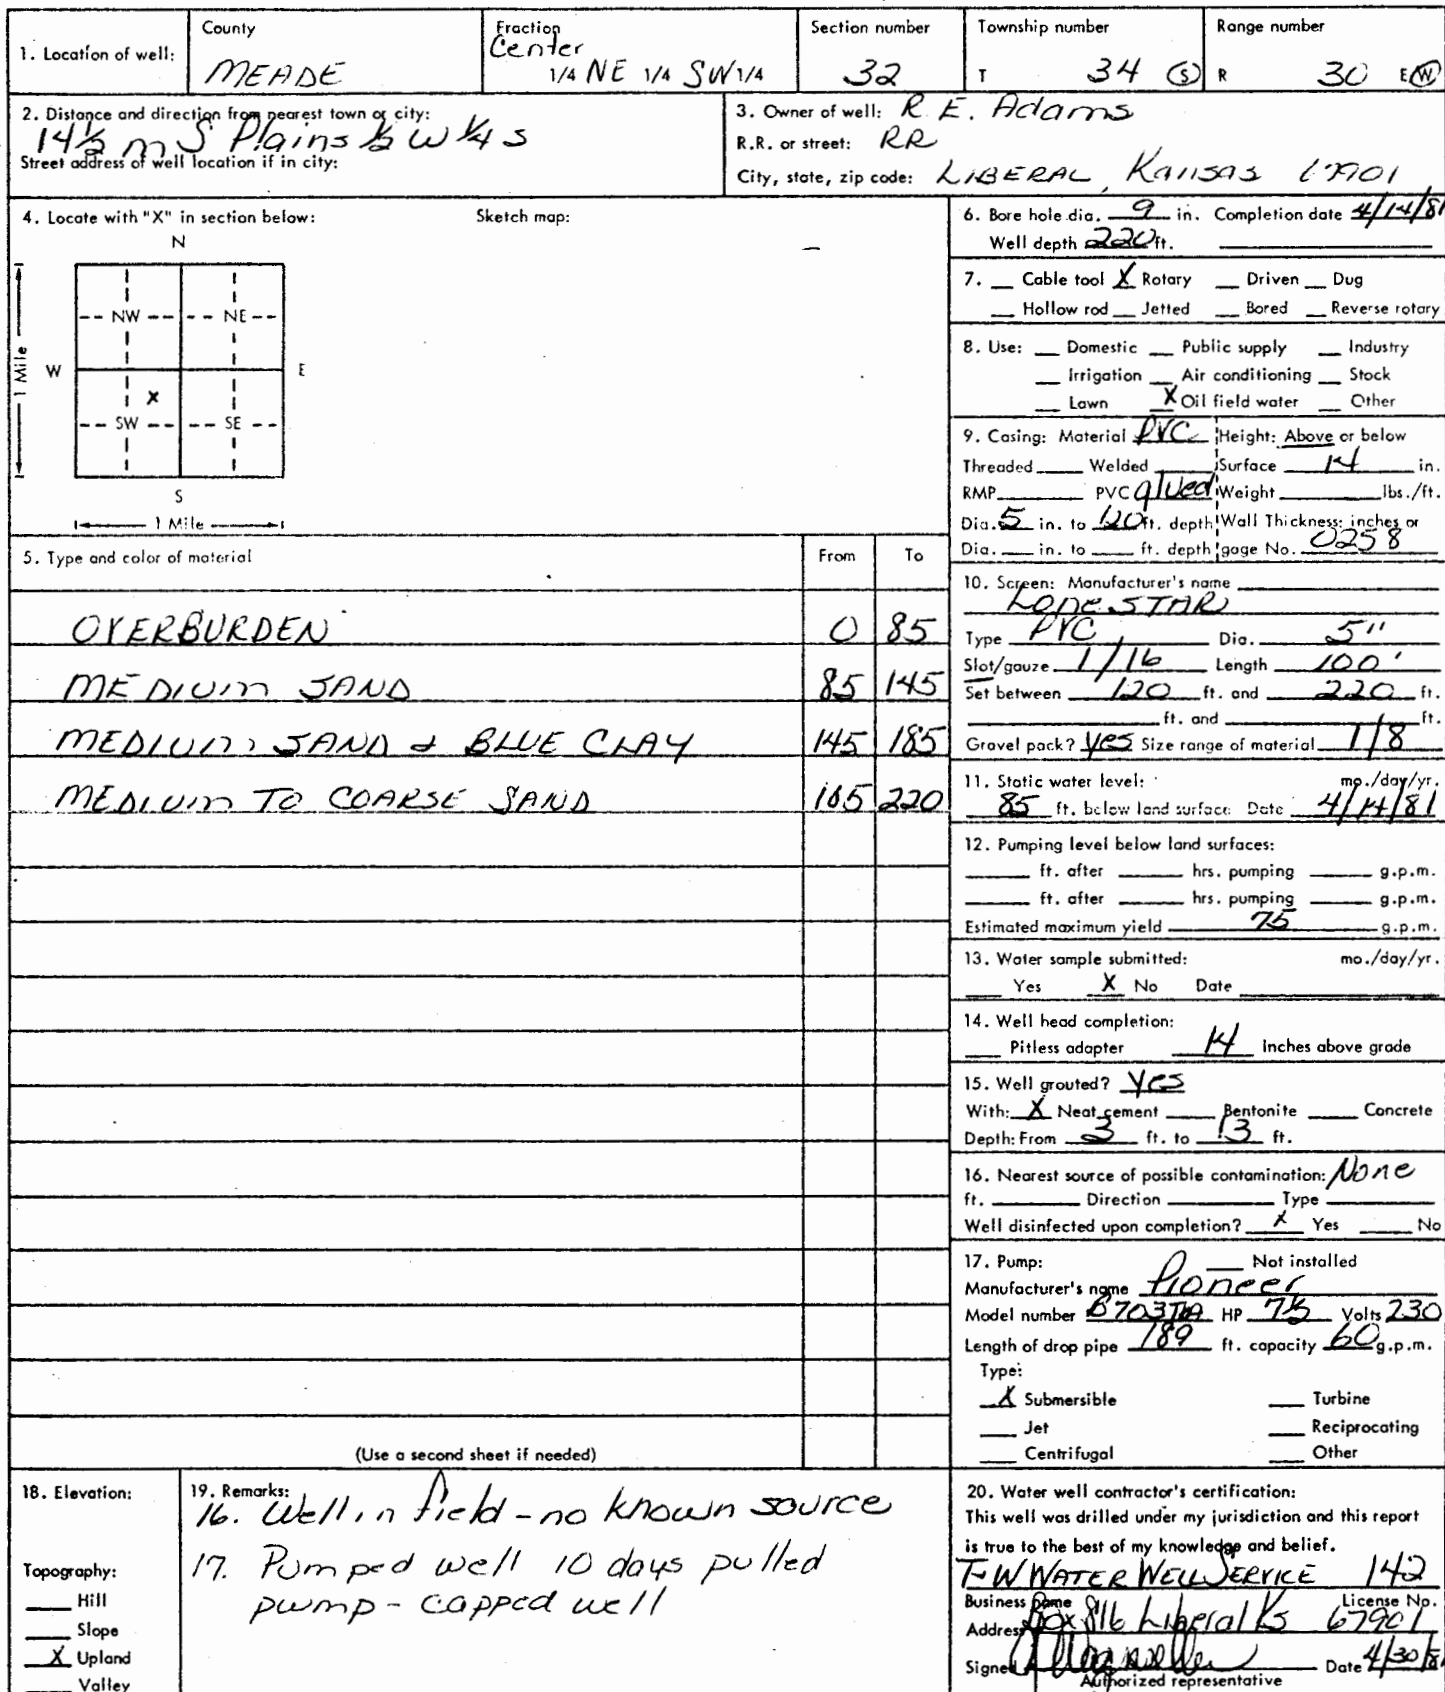 1. Location of well:
County
MEADE
Fraction
Center
1/4 NE 1/4 SW 1/4
Section number
32
Township number
T 34 S
Range number
R 30 E W
2. Distance and direction from nearest town or city:
14½ m S Plains ½ W ¼ S
Street address of well location if in city:
3. Owner of well: R.E. Adams
R.R. or street: RR
City, state, zip code: LIBERAL, Kansas 67901
4. Locate with "X" in section below:
Sketch map:
N
NW NE
W E
1 Mile
X
SW SE
S
1 Mile
5. Type and color of material From To
OVERBURDEN 0 85
MEDIUM SAND 85 145
MEDIUM SAND & BLUE CLAY 145 185
MEDIUM TO COARSE SAND 185 220
(Use a second sheet if needed)
6. Bore hole dia. 9 in. Completion date 4/14/81
Well depth 220 ft.
7. __ Cable tool X Rotary __ Driven __ Dug
__ Hollow rod __ Jetted __ Bored __ Reverse rotary
8. Use: __ Domestic __ Public supply __ Industry
__ Irrigation __ Air conditioning __ Stock
__ Lawn X Oil field water __ Other
9. Casing: Material PVC Height: Above or below
Threaded ____ Welded ____ Surface 14 in.
RMP ____ PVC glued Weight ____ lbs./ft.
Dia. 5 in. to 120 ft. depth Wall Thickness: inches or
Dia. __ in. to __ ft. depth gage No. 0258
10. Screen: Manufacturer's name
LONE STAR
Type PVC Dia. 5"
Slot/gauze 1/16 Length 100'
Set between 120 ft. and 220 ft.
____ ft. and ____ ft.
Gravel pack? yes Size range of material 1/8
11. Static water level: mo./day/yr.
85 ft. below land surface Date 4/14/81
12. Pumping level below land surfaces:
____ ft. after ____ hrs. pumping ____ g.p.m.
____ ft. after ____ hrs. pumping ____ g.p.m.
Estimated maximum yield 75 g.p.m.
13. Water sample submitted: mo./day/yr.
__ Yes X No Date ____
14. Well head completion:
__ Pitless adapter 14 Inches above grade
15. Well grouted? yes
With: X Neat cement ____ Bentonite ____ Concrete
Depth: From 3 ft. to 13 ft.
16. Nearest source of possible contamination: None
ft. ____ Direction ____ Type ____
Well disinfected upon completion? X Yes ____ No
17. Pump: __ Not installed
Manufacturer's name Pioneer
Model number HP 7½ Volts 230
Length of drop pipe 189 ft. capacity 60 g.p.m.
Type:
X Submersible __ Turbine
__ Jet __ Reciprocating
__ Centrifugal __ Other
18. Elevation:
Topography:
__ Hill
__ Slope
X Upland
__ Valley
19. Remarks:
16. Well in field - no known source
17. Pumped well 10 days pulled
pump - capped well
20. Water well contractor's certification:
This well was drilled under my jurisdiction and this report
is true to the best of my knowledge and belief.
T-W WATER WELL SERVICE 142
Business name License No.
Address Box 816 Liberal Ks 67901
Signed Date 4/30/81
Authorized representative